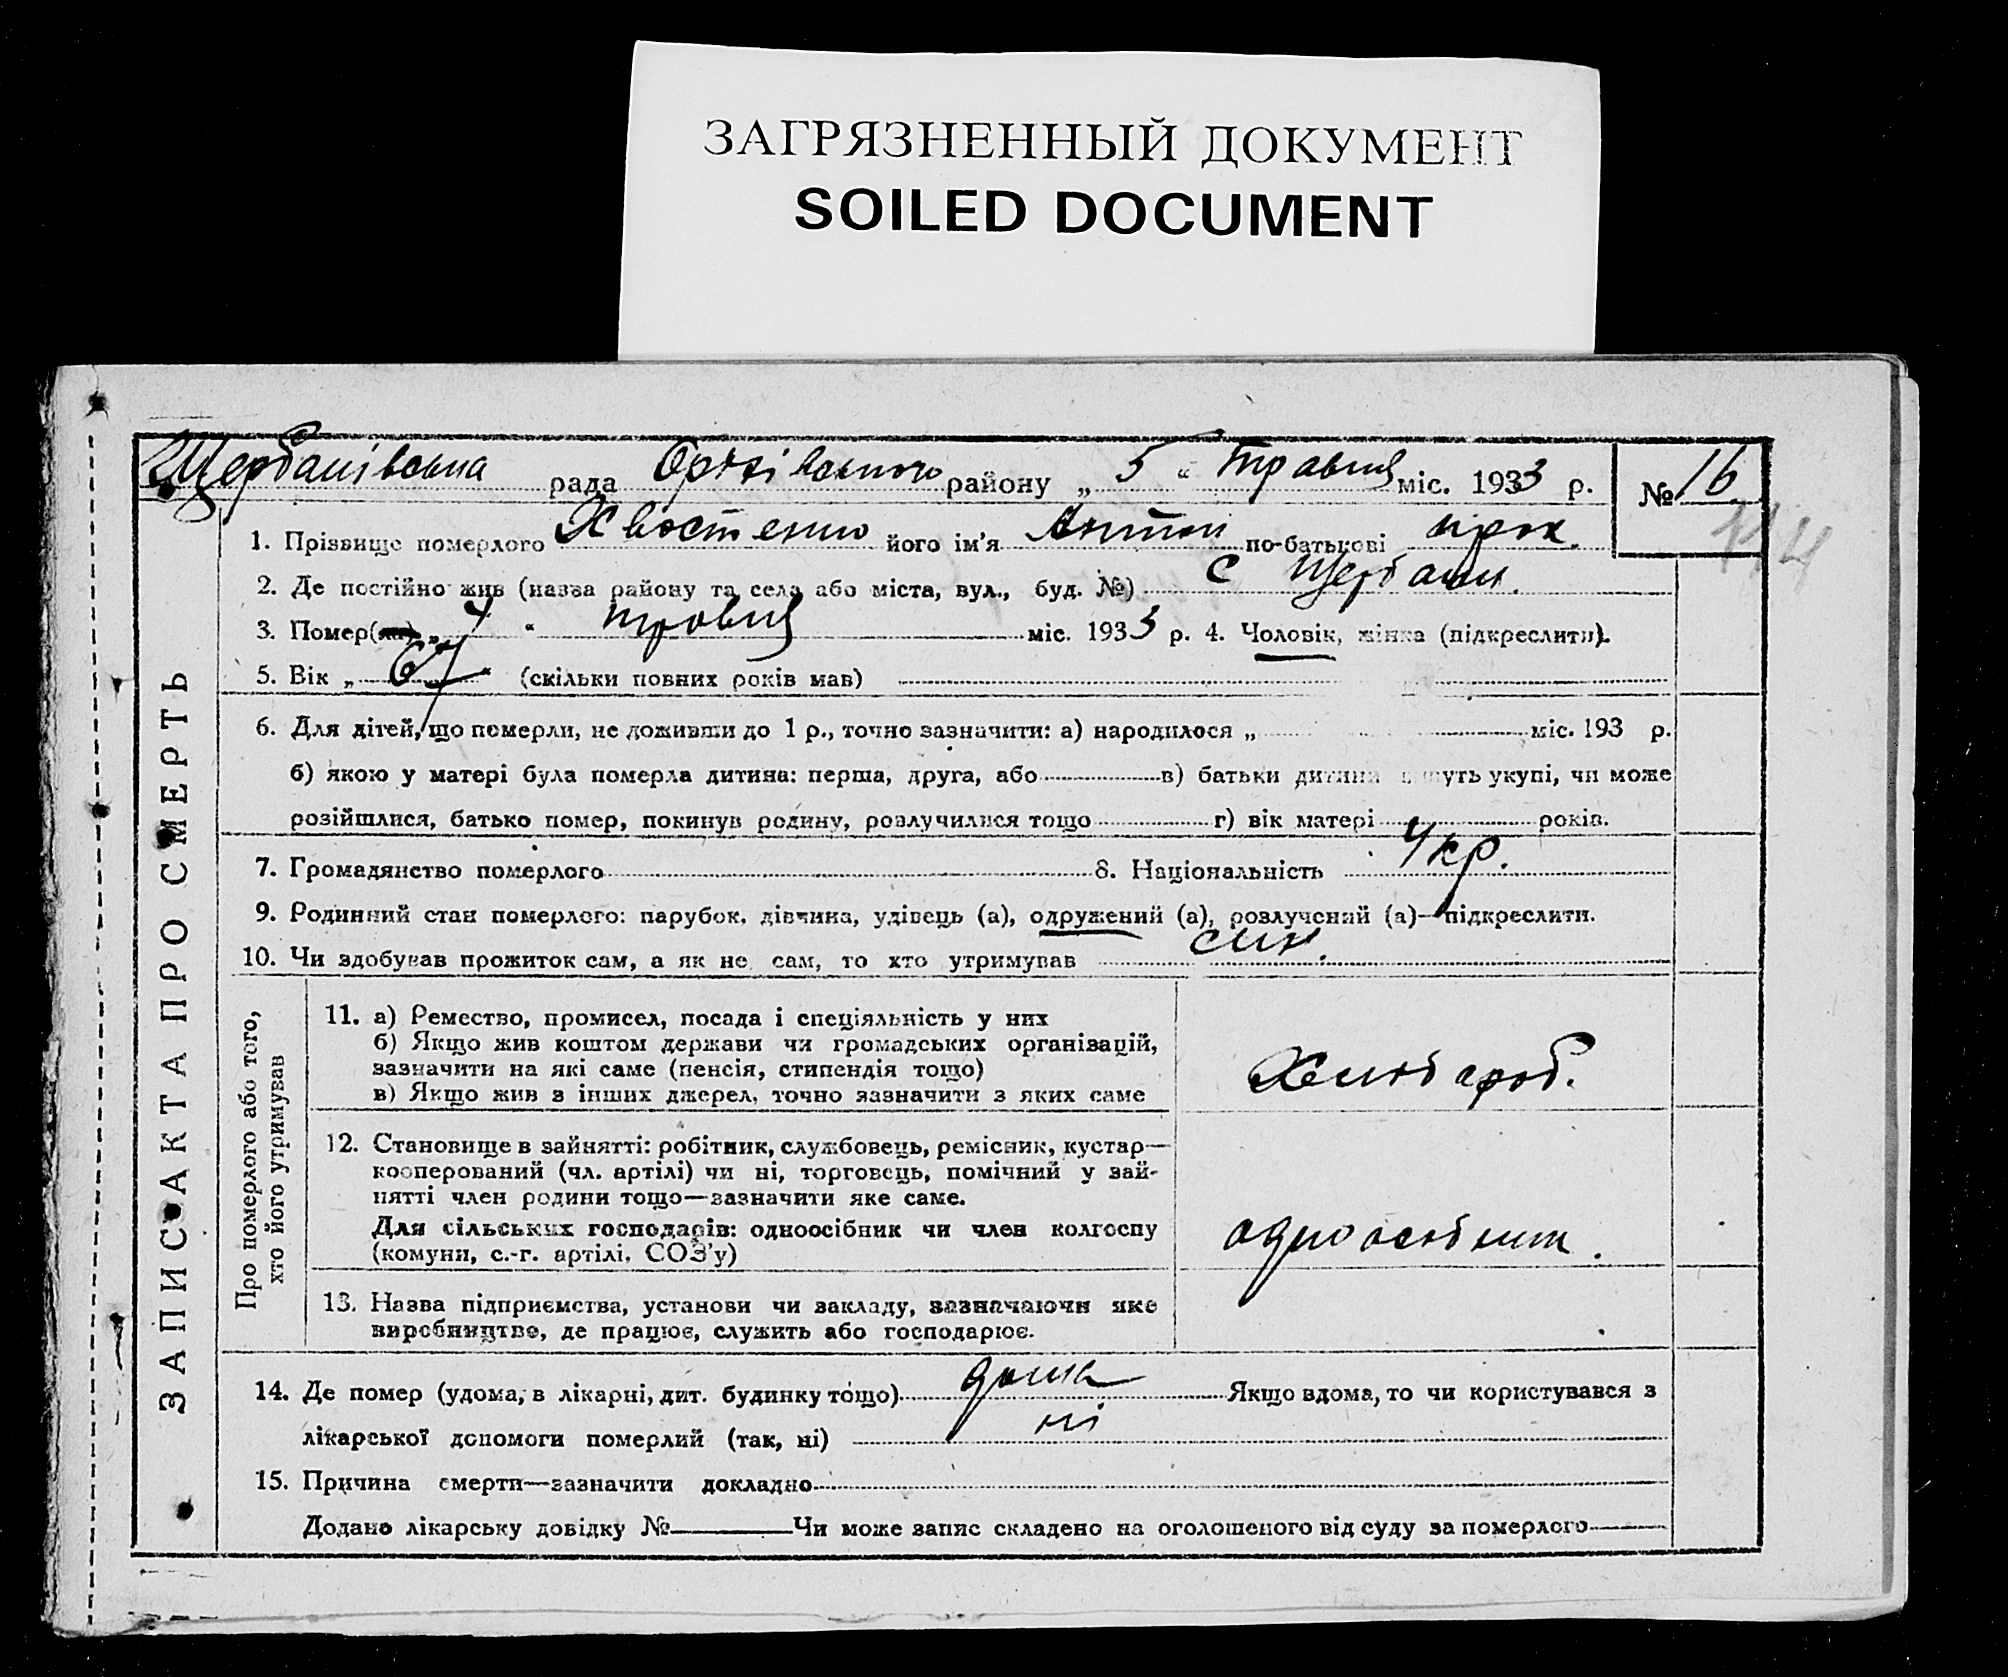 ЗАГРЯЗНЕННЫЙ ДОКУМЕНТ
SOILED DOCUMENT
Щербанівська рада Оржівського району „ 5 “ травня міс. 1933 р. № 16
1. Прізвище померлого Хвостенко його ім'я Антон по-батькові прок.
2. Де постійно жив (назва району та села або міста, вул., буд. №) с Щербани.
3. Помер(ла) „ 4 “ травня міс. 1933 р. 4. Чоловік, жінка (підкреслити).
5. Вік „ 67 “ (скільки повних років мав)
6. Для дітей, що померли, не доживши до 1 р., точно зазначити: а) народилося „ міс. 193 р.
б) якою у матері була померла дитина: перша, друга, або в) батьки дитини живуть укупі, чи може
розійшлися, батько помер, покинув родину, розлучилися тощо г) вік матері років.
7. Громадянство померлого 8. Національність Укр.
9. Родинний стан померлого: парубок, дівчина, удівець (а), одружений (а), розлучений (а)—підкреслити.
10. Чи здобував прожиток сам, а як не сам, то хто утримував син.
ЗАПИС АКТА ПРО СМЕРТЬ
Про померлого або того,
хто його утримував
11. а) Ремество, промисел, посада і спеціяльність у них
б) Якщо жив коштом держави чи громадських організацій,
зазначити на які саме (пенсія, стипендія тощо)
в) Якщо жив з інших джерел, точно зазначити з яких саме
Хлібороб.
12. Становище в зайнятті: робітник, службовець, ремісник, кустар—
кооперований (чл. артілі) чи ні, торговець, помічний у зай-
нятті член родини тощо—зазначити яке саме.
Для сільських господарів: одноосібник чи член колгоспу
(комуни, с.-г. артілі, СОЗ'у)
одноосібник.
13. Назва підприємства, установи чи закладу, зазначаючи яке
виробництво, де працює, служить або господарює.
14. Де помер (удома, в лікарні, дит. будинку тощо) дома Якщо вдома, то чи користувався з
лікарської допомоги померлий (так, ні) ні
15. Причина смерти—зазначити докладно
Додано лікарську довідку № Чи може запис складено на оголошеного від суду за померлого